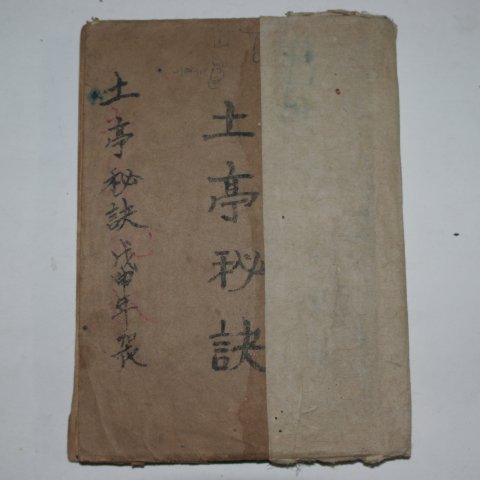 土亭秘訣
土亭秘訣 戊申年